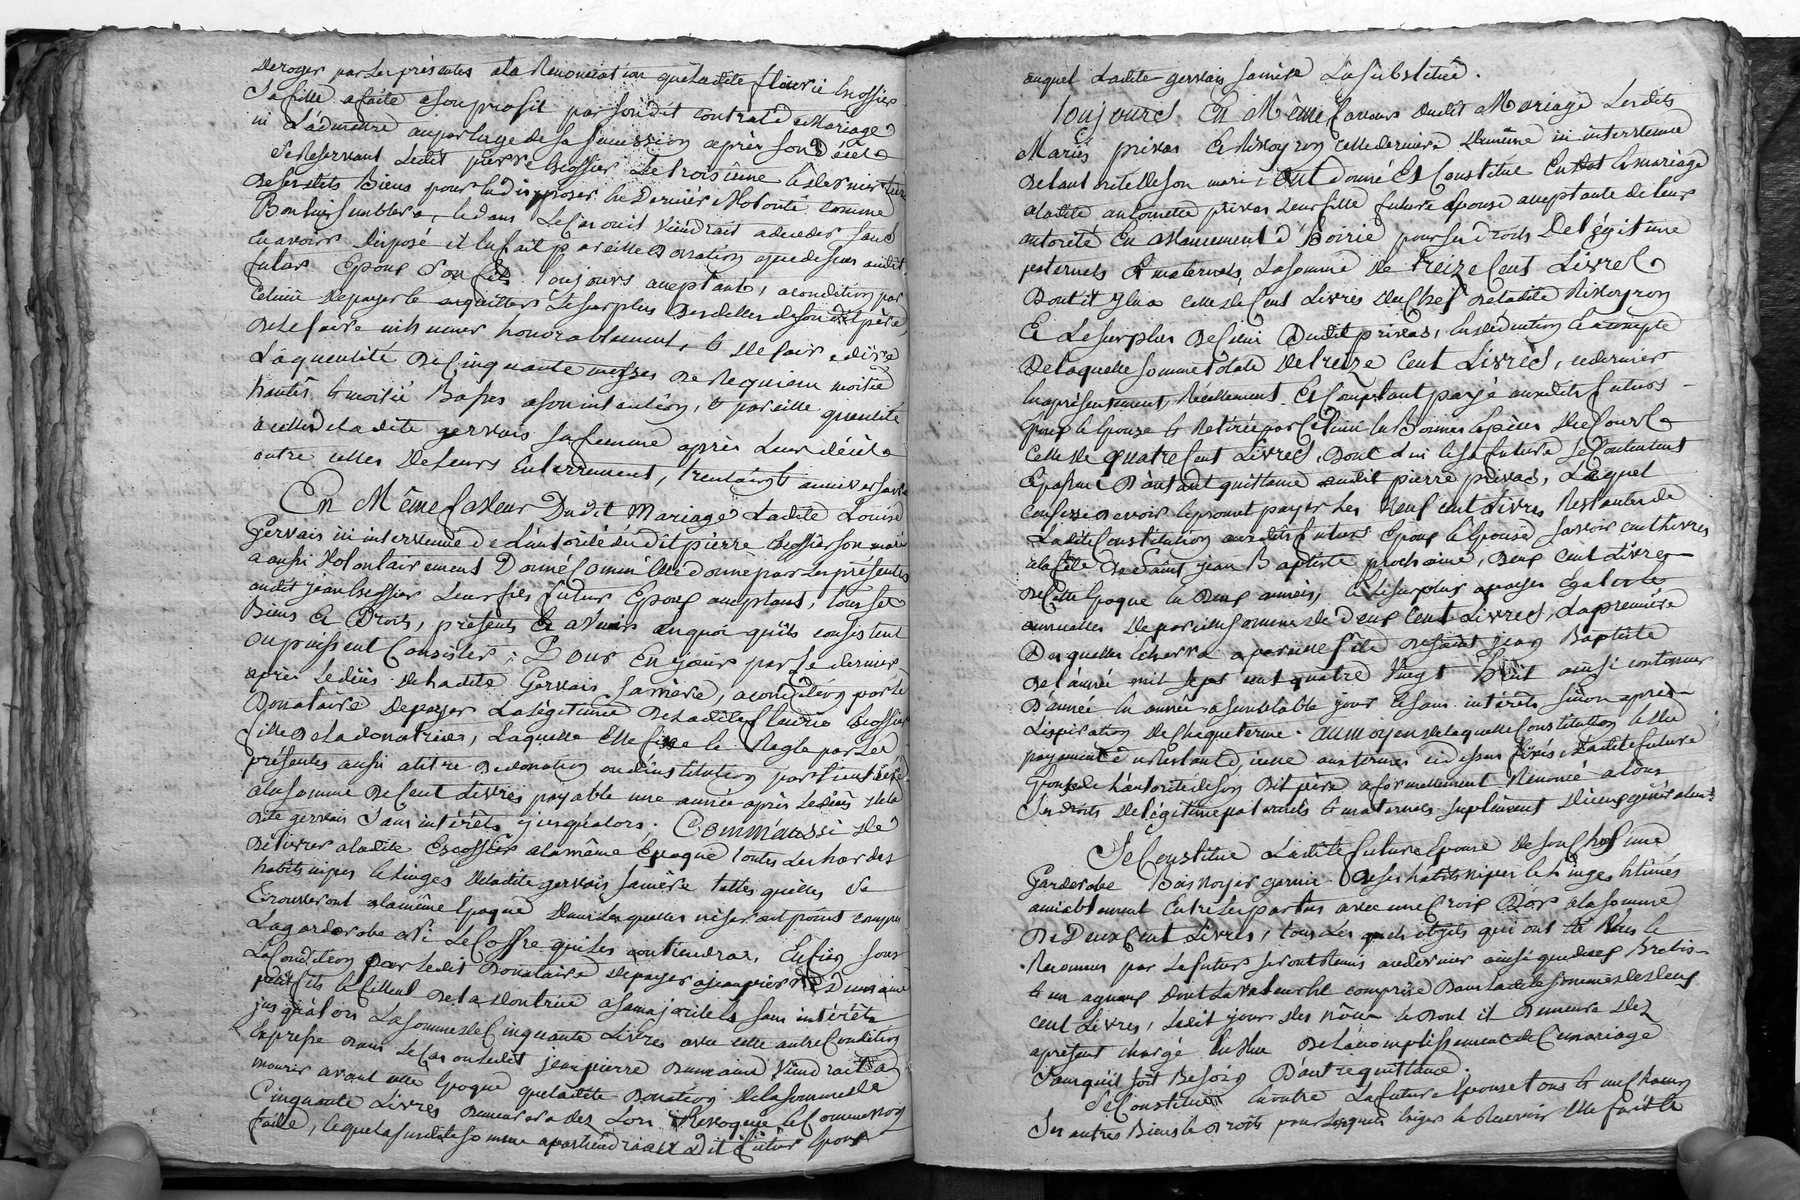 Deroger par les présentes a la Renonciation que ladite fleurie Escossier
Sa fille a faite a son profit par sondit contrat de Mariage
ni L'admettre au partage de sa succession après son Décès
Se Reservant Ledit pierre Escossier Le troisième & dernier
De ses dits Biens pour en disposer en Dernière Volonté comme
Bon lui semblera, & dans Le Cas ou il Viendrait a deceder sans
En avoir Disposé il En fait pareille Donation que dessus audit
futur Epoux Son fils Toujours acceptant, a condition par
Celuici de payer & acquitter Le surplus Des dettes de son dit père,
De le faire inhumer honorablement, & de faire dire
La quantité De Cinquante messes De Requiem moitié
hautes & moitié Basses a son intention, & pareille quantité
a celle de la dite gervais sa femme après Leur décès
outre celles De Leurs Enterrement, trentain & anniversaire
En Même faveur Du dit Mariage Ladite Louise
Gervais ici intervenue De L'autorité du dit pierre Escossier son mari
a aussi Volontairement Donné Comme Elle donne par les présentes
audit jean Escossier Leur fils futur Epoux acceptant, tous ses
Biens & Droits, présents & a Venir En quoi qu'ils consistent
ou puissent Consister; Pour En jouir par ce dernier
après Le décès de ladite Gervais sa mère, a condition par le
Donataire De payer La Légitime De Ladite fleurie Escossier
fille De la donatrice, Laquelle Elle fixe & Regle par Les
présentes aussi a titre De donation ou d'institution particulière
a la somme De Cent Livres payable une année après Le décès de la
dite gervais Sans intérêts jusqu'alors. Comm'aussi de
Délivrer a ladite Escossier a la même Epoque toutes Les hardes
habits nipes & linges De ladite gervais sa mère telles quelles Se
Trouveront a la même Epoque Dans Lesquelles ne seront point compris
La garderobe Ni Le Coffre qui les contiendra, Enfin sous
La Condition par Ledit Donataire De payer a jean pierre Dumaine
petit fils & filleul De la donatrice a sa majorité & sans intérêts
jusqu'alors La somme de Cinquante Livres avec cette autre Condition
Expresse Dans Le Cas ou Ledit jean pierre Dumaine Viendrait a
mourir avant cette Epoque que ladite Donation De la somme de
Cinquante Livres Demeurera dez Lors Revoquée & Comme non
faite, & que la susdite somme apartiendra au Dit futur Epoux
auquel Ladite gervais sa mère La substitue.
Toujours En Même faveur Dudit Mariage Lesdits
Mariés privas & cette dernière Demême ici intervenue
De L'autorité De son mari; Ont Donné Et Constitué En Dot & mariage
a ladite antoinette privas Leur fille future Epouse acceptante de leur
autorité En avancement d'hoirie pour ses Droits De légitime
paternels & maternels, La somme De treize Cent Livres
Dont il y en a celle de Cent Livres du Chef De ladite
Et Le surplus De Celui Dudit privas, En déduction & a compte
De laquelle somme totale De treize Cent Livres, ce dernier
En a présentement, Réellement Et Comptant payé aux dits futurs
Epoux & Epouse & Retirée par Celuici En Bonnes Espèces De Cours
Celle de quatre Cent Livres, Dont Lui & sa future Se Contentent
Et passent D'autant quittance audit pierre privas, Lequel
Confesse Devoir & promet payer Les Neuf Cent Livres Restantes de
Ladite Constitution aux dits futurs Epoux & Epouse savoir cent Livres
a la fête De Saint jean Baptiste prochaine, Deux Cent Livres
De cette Epoque En Deux années, & Le surplus a payes Egales &
annuelles De pareille somme de Deux Cent Livres, La première
Desquelles Echerra a pareille fête De Saint Jean Baptiste
De L'année mil sept cent quatre Vingt huit ainsi continuer
D'année En année a semblable jour & sans intérêts sinon après
L'expiration De Chaque terme. Au moyen De laquelle Constitution & Du
payement D'icelle aux termes ci dessus fixés, Ladite future
Epouse De L'autorité de son Dit père a formellement Renoncé a tous
Ses droits De légitime paternels & maternels, suplément D'iceux généralement
Se Constitue Ladite future Epouse De son Chef une
Garderobe Bois Noyer garnie De ses habits nipes & Linges Estimés
amiablement Entre Les parties avec une Croix D'or a la somme
De Deux Cent Livres, tous Les quels objets qui ont été Vus &
Reconnus par Le futur Seront Remis au dernier ainsi que deux Brebis
& un agneau Dont La Valeur Est comprise Dans Ladite somme de Deux
cent Livres, Ledit jour Des Nôces & Dont il Demeure Dez
a présent chargé En Vue De L'accomplissement de Ce mariage
Sans qu'il soit Besoin D'autre quittance.
Se Constitue En outre La future Epouse tous & un Chacun
Ses autres Biens & Droits pour Lesquels Exiger & Recevoir Elle fait &